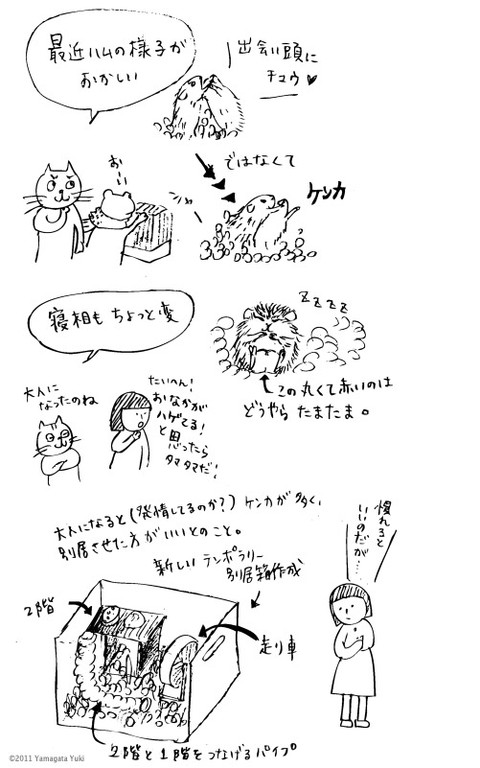 最近ハムの様子が
おかしい
出会い頭に
チュウ♥
おーい
ではなくて
ケンカ
寝相もちょっと変
ZZZZ
この丸くて赤いのは
どうやら たまたま。
大人に
なったのね
たいへん!
おなかが
ハゲてる!
と思ったら
タマタマだ!
大人になると(発情してるのか?)ケンカが多く、
別居させた方がいいとのこと。
新しい テンポラリー
別居箱作成
慣れると
いいのだが…
2階
走り車
2階と1階をつなげるパイプ
©2011 Yamagata Yuki